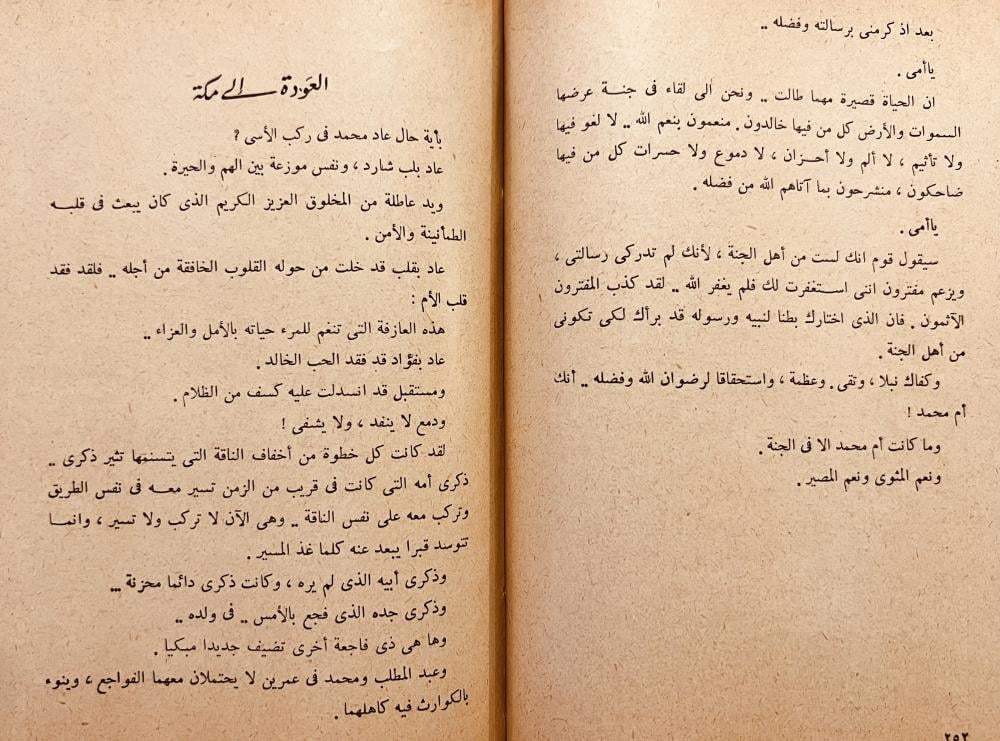 بعد اذ كرمنى برسالته وفضله ..
ياأمى .
ان الحياة قصيرة مهما طالت .. ونحن الى لقاء فى جنــة عرضها
السموات والأرض كل من فيها خالدون . منعمون بنعم الله .. لا لغو فيها
ولا تأثيم ، لا ألم ولا أحــزان ، لا دموع ولا حسرات كل من فيها
ضاحكون ، منشرحون بما آتاهم الله من فضله .
ياأمى .
سيقول قوم انك لست من أهل الجنة ، لأنك لم تدركى رسالتى ،
ويزعم مفترون اننى استــغفرت لك فلم يغفر الله .. لقد كذب المفترون
الآثمون . فان الذى اختارك بطنا لنبيه ورسوله قد برأك لكى تكونى
من أهل الجنة .
وكفاك نبلا ، وتقى . وعظمة ، واستحقاقا لرضوان الله وفضله .. أنك
أم محمد !
وما كانت أم محمد الا فى الجنة .
ونعم المثوى ونعم المصير .
٢٥٢
العودة الى مكة
بأية حال عاد محمد فى ركب الأسى ؟
عاد بلب شارد ، ونفس موزعة بين الهم والحيرة .
ويد عاطلة من المخلوق العزيز الكريم الذى كان يبعث فى قلبــه
الطمأنينة والأمن .
عاد بقلب قد خلت من حوله القلوب الخافقة من أجله .. فلقد فقد
قلب الأم :
هذه العازفة التى تنغم للمرء حياته بالأمل والعزاء ..
عاد بفؤاد قد فقد الحب الخالد .
ومستقبل قد انسدلت عليه كسف من الظلام .
ودمع لا ينفد ، ولا يشفى !
لقد كانت كل خطوة من أخفاف الناقة التى يتسنمها تثير ذكرى ..
ذكرى أمه التى كانت فى قريب من الزمن تسير معــه فى نفس الطريق
وتركب معه على نفس الناقة .. وهى الآن لا تركب ولا تسير ، وانمــا
تتوسد قبرا يبعد عنه كلما غذ المسير .
وذكرى أبيه الذى لم يره ، وكانت ذكرى دائما محزنة ...
وذكرى جده الذى فجع بالأمس .. فى ولده ..
وها هى ذى فاجعة أخرى تضيف جديدا مبكيا .
وعبد المطلب ومحمد فى عمرين لا يحتملان معهما الفواجع ، وينوء
بالكوارث فيه كاهلهما .